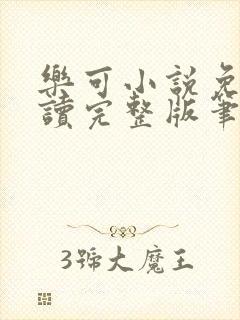 樂可小説免
讀完整版筆
3號大魔王